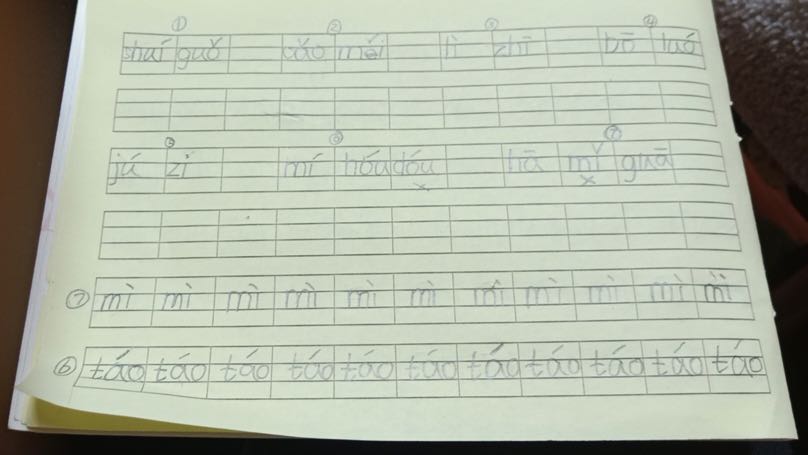 ① ② ③ ④
shuí guǒ cǎo méi lì zhī bō luó
⑤ ⑥ ⑦
jú zi mí hóu dóu hā mǐ guā
× ×
⑦ mì mì mì mì mì mì mì mì mì mì mì
⑥ táo táo táo táo táo táo táo táo táo táo táo